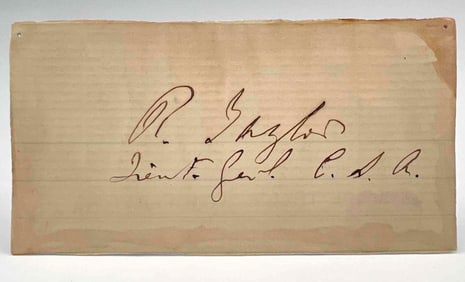 R. Taylor
Lieut. Genl. C. S. A.